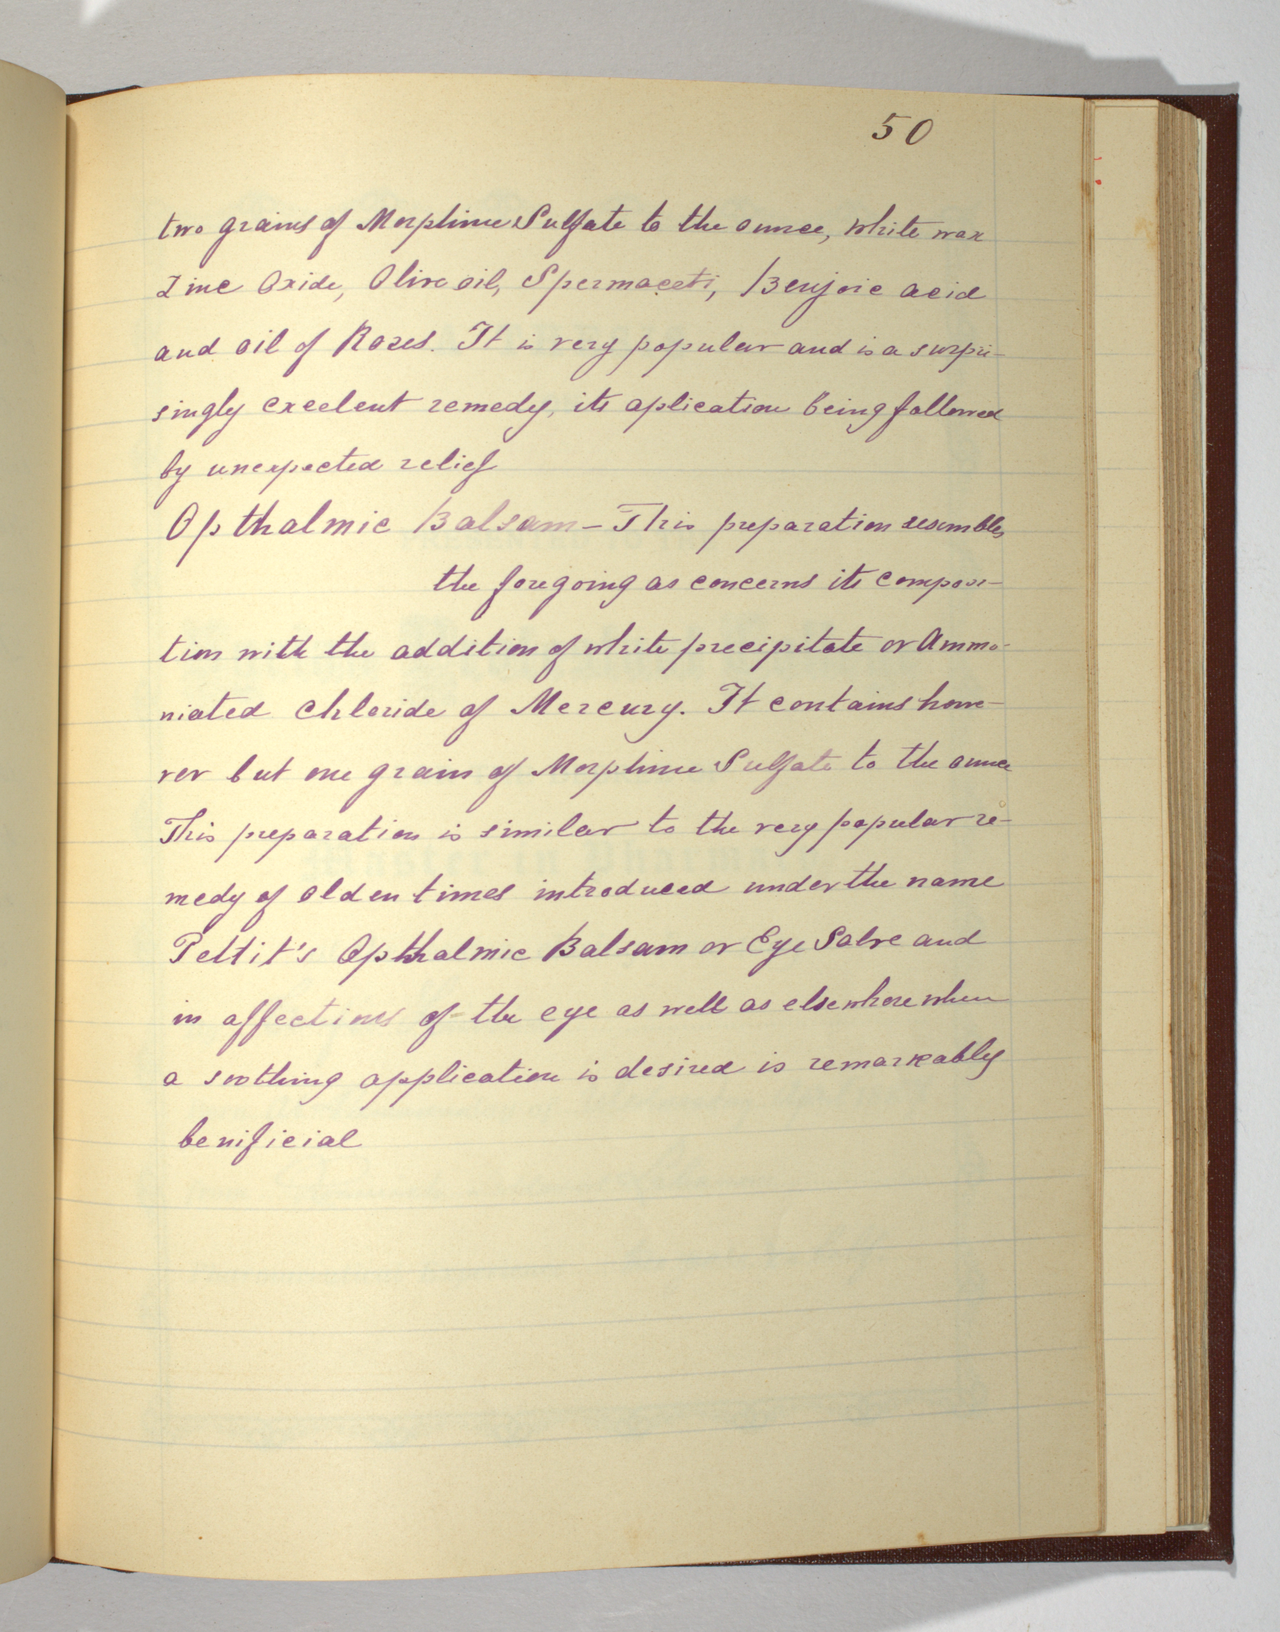 50
two grains of Morphine Sulfate to the ounce, white wax
Zinc Oxide, Olive oil, Spermaceti, Benzoic acid
and oil of Roses. It is very popular and is a surpri-
singly excelent remedy, its aplication being followed
by unexpected relief
Opthalmic Balsam – This preparation resembles
the foregoing as concerns its composi-
tion with the addition of white precipitate or Ammo-
niated Chloride of Mercury. It contains howe-
ver but one grain of Morphine Sulfate to the ounce
This preparation is similar to the very popular re-
medy of olden times introduced under the name
Pettit's Opthalmic Balsam or Eye Salve and
in affections of the eye as well as elsewhere when
a soothing application is desired is remarkably
benificial